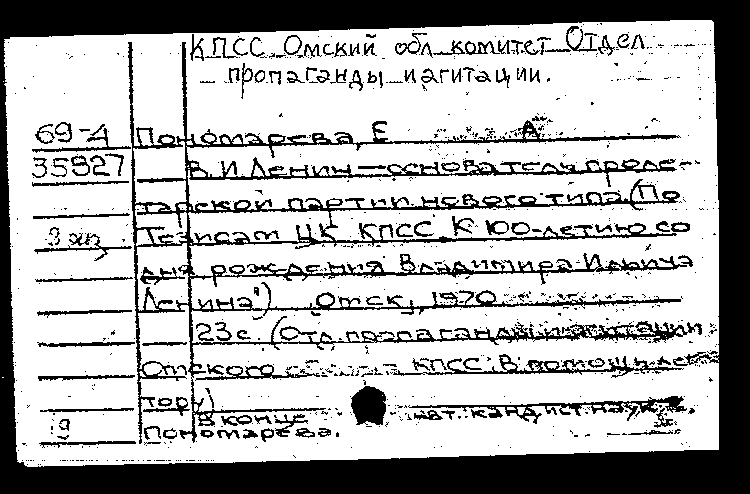 КПСС Омский обл комитет Отдел
пропаганды и агитации.
69-4 Пономарева, Е А
35927 В. И. Ленин — основатель проле-
тарской партии нового типа. (По
3 экз Тезисам ЦК КПСС „К 100-летию со
дня рождения Владимира Ильича
Ленина") Омск, 1970
23 с. (Отд. пропаганды и агитации
Омского КПСС. В помощь лек
тору)
В конце авт. канд. ист. наук Е.
Пономарева.